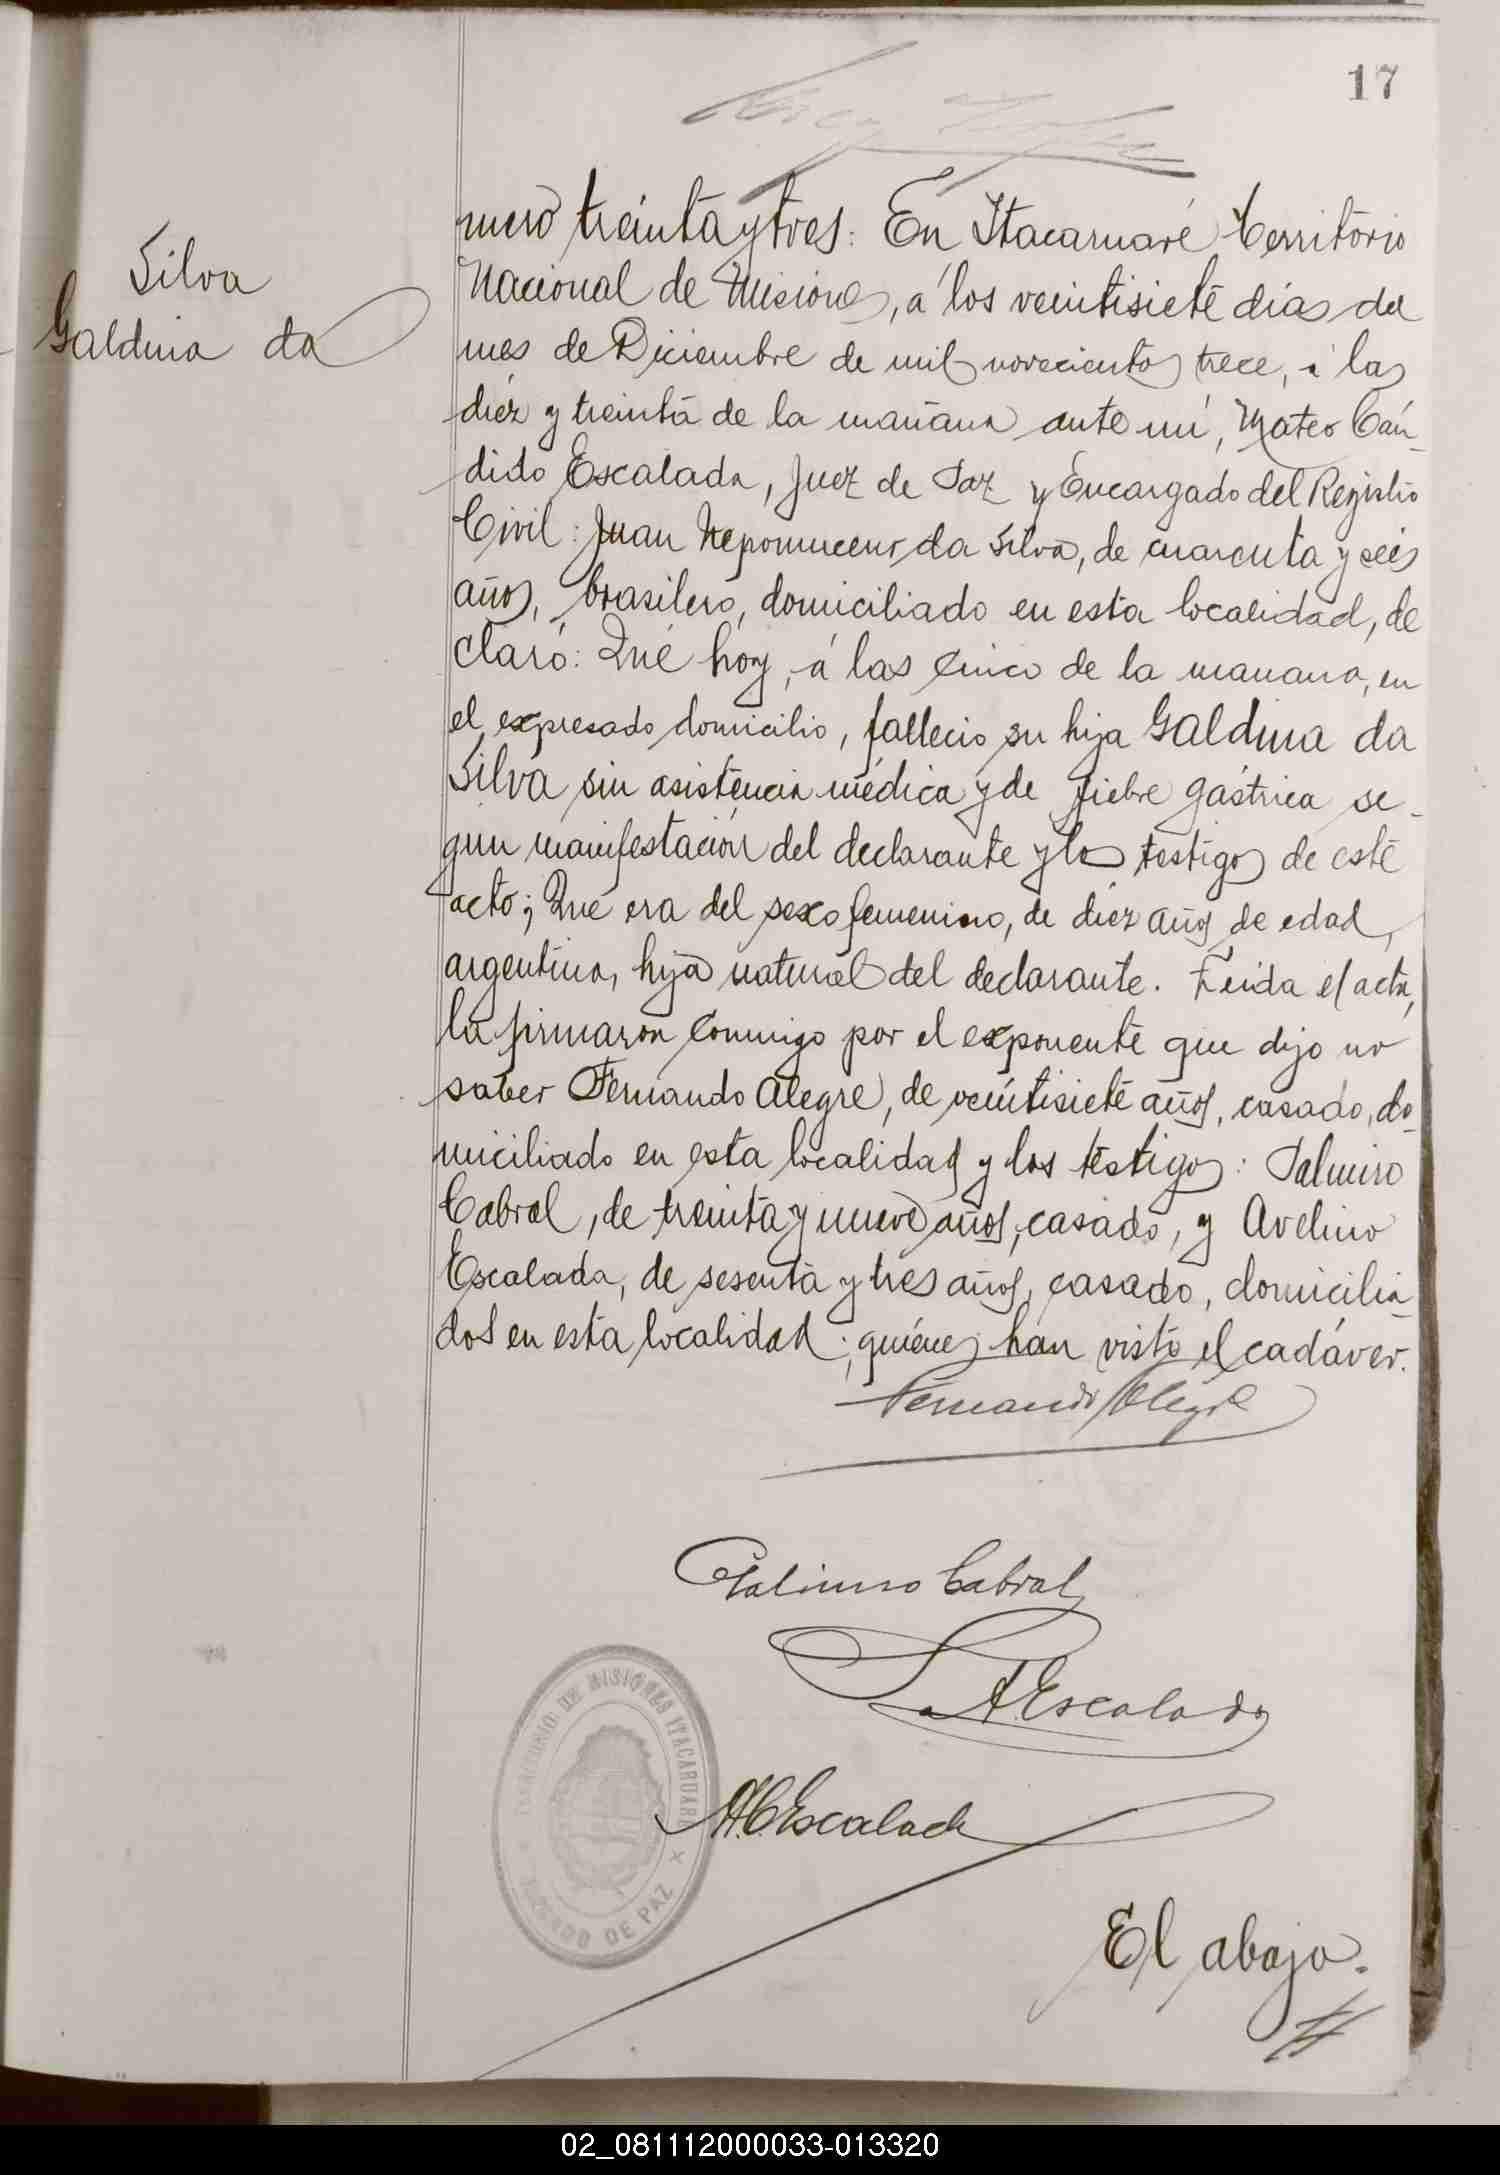 17
Silva
Galdina da
mero treinta y tres: En Itacaruaré Territorio
Nacional de Misiones, á los veintisiete dias del
mes de Diciembre de mil novecientos trece, á las
diéz y treinta de la mañana ante mí, Mateo Cán-
dido Escalada, Juez de Paz y Encargado del Registro
Civil: Juan Nepomuceno da Silva, de cuarenta y seis
años, brasilero, domiciliado en esta localidad, de
claró: Qué hoy, á las cinco de la manana, en
el expresado domicilio, fallecio su hija Galdina da
Silva sin asistencia médica y de fiebre gástrica se-
gun manifestación del declarante y los testigos de este
acto; Que era del sexo femenino, de diéz años de edad,
argentina, hija natural del declarante. Leida el acta,
la firmaron conmigo por el exponente que dijo no
saber Fernando Alegre, de veintisiete años, casado, do-
miciliado en esta localidad y los testigos: Palmiro
Cabral, de treinta y nueve años, casado, y Avelino
Escalada, de sesenta y tres años, casado, domicilia-
dos en esta localidad; quienes han visto el cadáver.
Fernando Alegre
Palmiro Cabral
A Escalada
MCEscalada
NACIONAL DE MISIONES ITACARUARE
JUZGADO DE PAZ
El abajo.
02_081112000033-013320